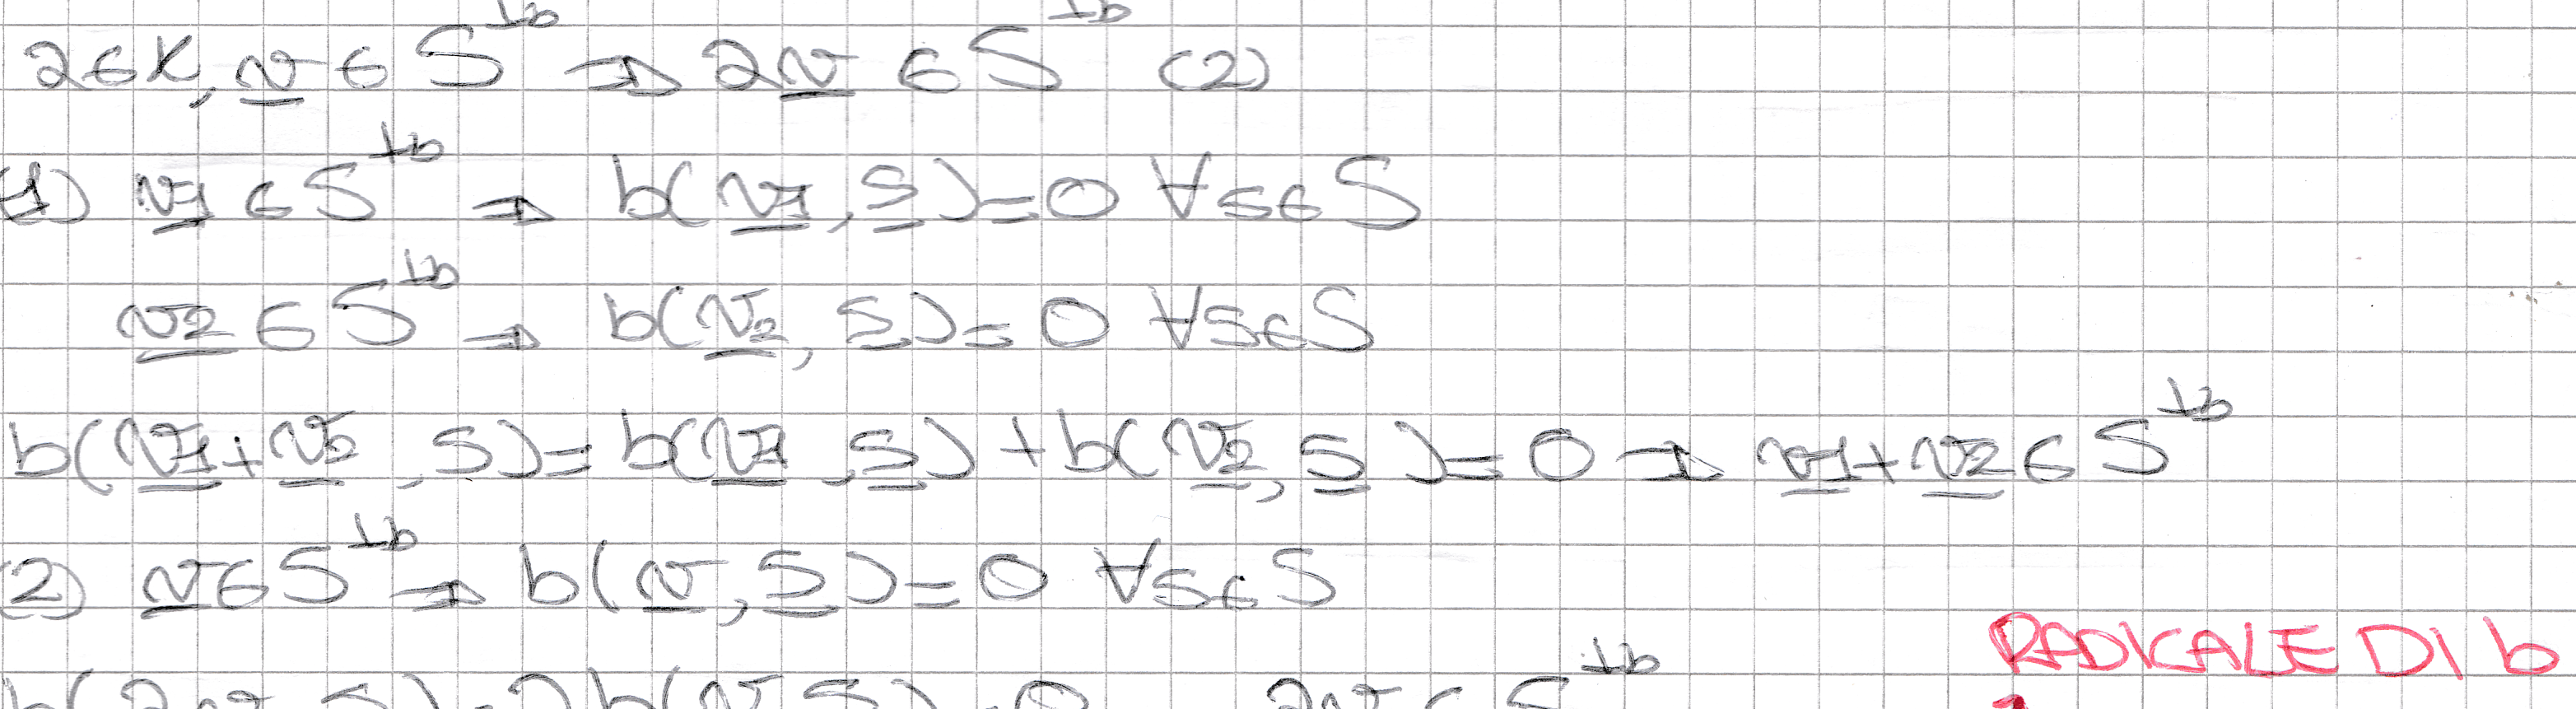 λ∈K, v ∈ S^⊥b ⇒ λv ∈ S^⊥b (2)
(1) v1 ∈ S^⊥b ⇒ b(v1, s) = 0 ∀s∈S
v2 ∈ S^⊥b ⇒ b(v2, s) = 0 ∀s∈S
b(v1+v2, s) = b(v1, s) + b(v2, s) = 0 ⇒ v1+v2 ∈ S^⊥b
(2) v∈S^⊥b ⇒ b(v, s) = 0 ∀s∈S
RADICALE DI b
b(λv, s) = λb(v, s) = 0 λv ∈ S^⊥b